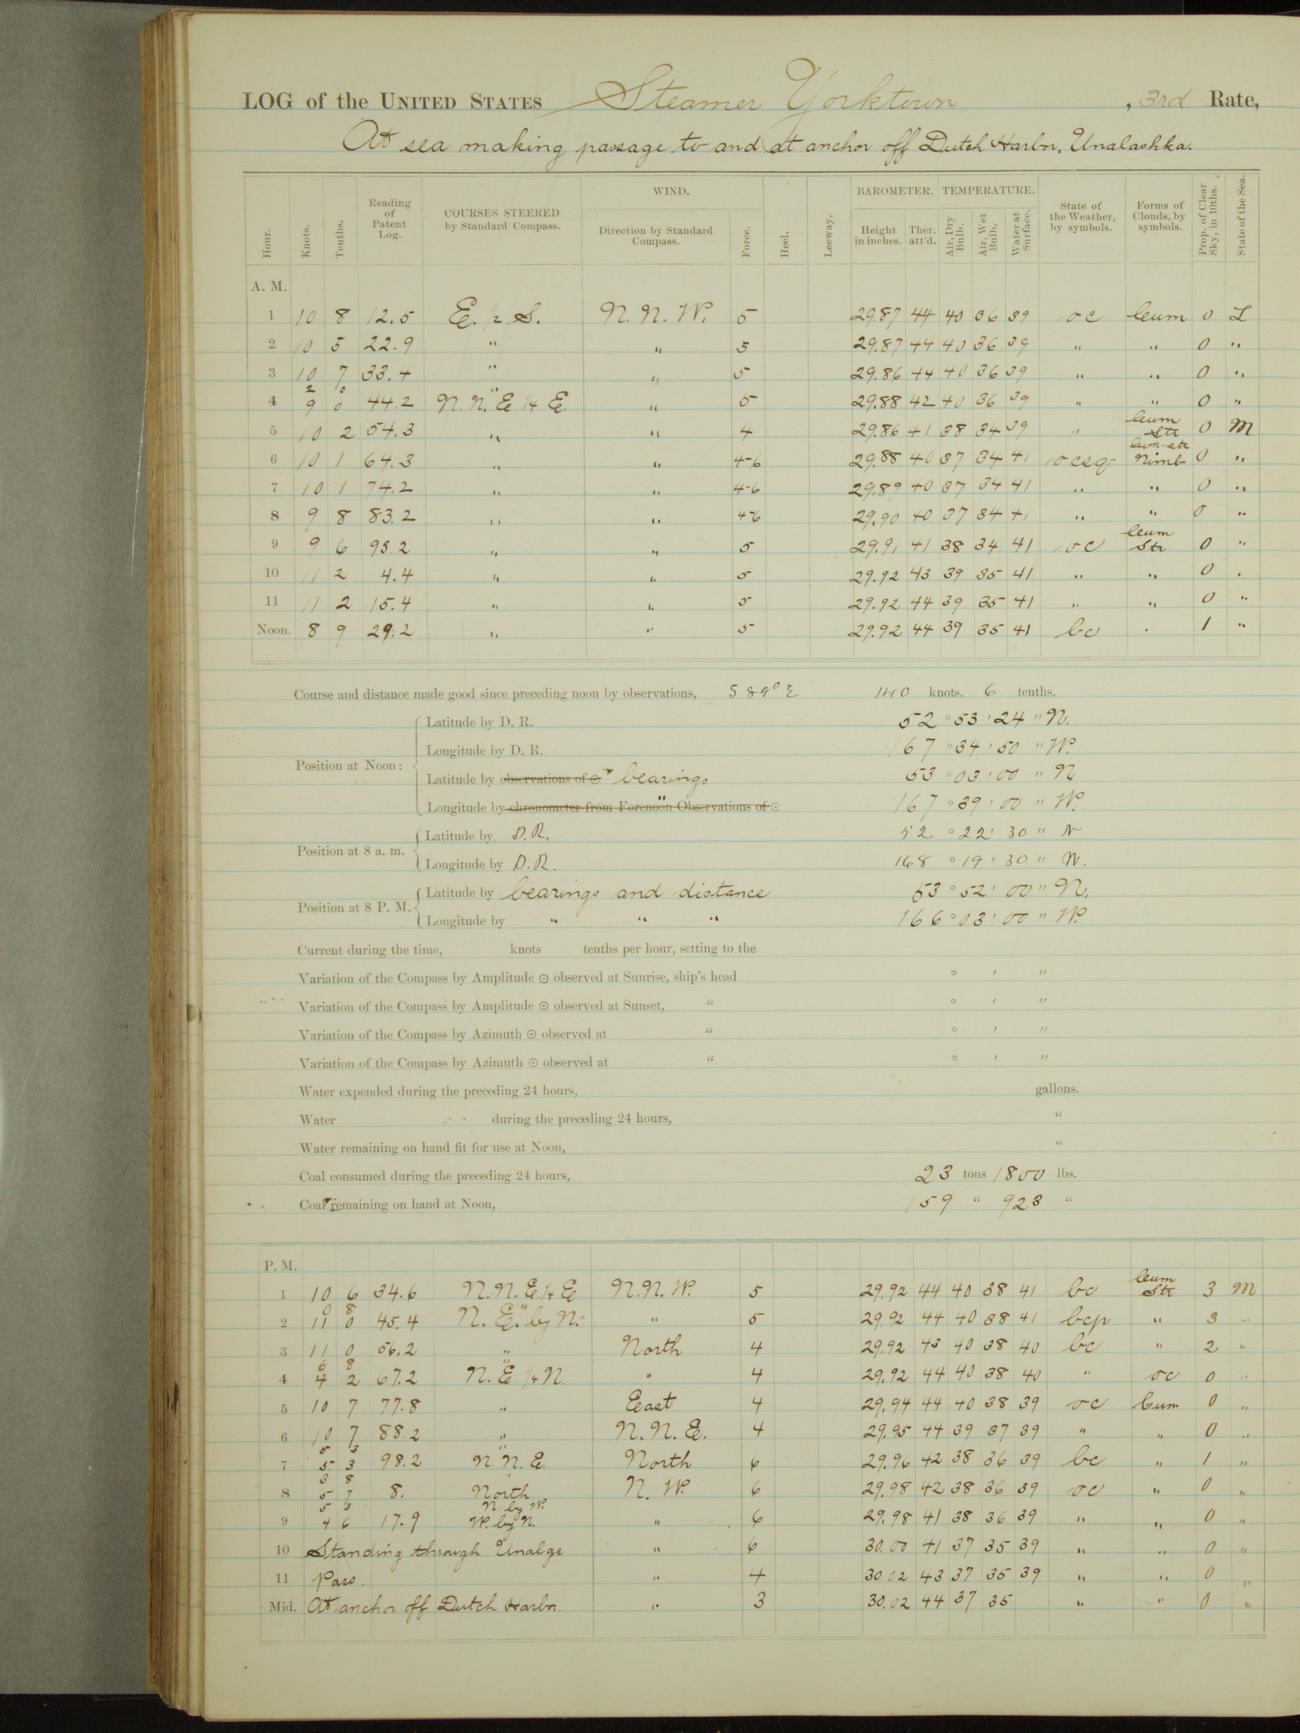 LOG of the UNITED STATES Steamer Yorktown, 3rd Rate,
At sea making passage to and at anchor off Dutch Harbor, Unalashka.
Hour. Knots. Tenths. Reading of Patent Log. COURSES STEERED by Standard Compass. WIND. Direction by Standard Compass. Force. Heel. Leeway. BAROMETER. Height in inches. Ther. att'd. TEMPERATURE. Air, Dry Bulb. Air, Wet Bulb. Water at Surface. State of the Weather, by symbols. Forms of Clouds, by symbols. Prop. of Clear Sky, in 10ths. State of the Sea.
A. M.
1 10 8 12.5 E. ½ S. N. N. W. 5 29.87 44 40 36 39 oc Cum 0 L
2 10 5 22.9 " " 5 29.87 44 40 36 39 " " 0 "
3 10 7 33.4 " " 5 29.86 44 40 36 39 " " 0 "
2 0
4 9 0 44.2 N. N. E ¼ E. " 5 29.88 42 40 36 39 " " 0 "
5 10 2 54.3 " " 4 29.86 41 38 34 39 " Cum Str 0 M
6 10 1 64.3 " " 4-6 29.88 40 37 34 41 ocsq Cum-str Nimb 0 "
7 10 1 74.2 " " 4-6 29.89 40 37 34 41 " " 0 "
8 9 8 83.2 " " 4-6 29.90 40 37 34 41 " " 0 "
9 9 6 93.2 " " 5 29.91 41 38 34 41 oc Cum Str 0 "
10 11 2 4.4 " " 5 29.92 43 39 35 41 " " 0 "
11 11 2 15.4 " " 5 29.92 44 39 35 41 " " 0 "
Noon. 8 9 29.2 " " 5 29.92 44 39 35 41 bc " 1 "
Course and distance made good since preceding noon by observations, S 89° E 140 knots. 6 tenths.
Position at Noon: Latitude by D. R. 52 ° 53 ' 24 " N.
Longitude by D. R. 167 ° 34 ' 50 " W.
Latitude by observations of ☉ bearings 53 ° 03 ' 00 " N
Longitude by chronometer from Forenoon Observations of ☉ " 167 ° 39 ' 00 " W.
Position at 8 a. m. Latitude by D.R. 52 ° 22 ' 30 " N
Longitude by D.R. 168 ° 19 ' 30 " W.
Position at 8 P. M. Latitude by bearings and distance 53 ° 52 ' 00 " N.
Longitude by " " " 166 ° 03 ' 00 " W.
Current during the time, knots tenths per hour, setting to the
Variation of the Compass by Amplitude ☉ observed at Sunrise, ship's head ° ' "
Variation of the Compass by Amplitude ☉ observed at Sunset, " ° ' "
Variation of the Compass by Azimuth ☉ observed at " ° ' "
Variation of the Compass by Azimuth ☉ observed at " ° ' "
Water expended during the preceding 24 hours, gallons.
Water during the preceding 24 hours, "
Water remaining on hand fit for use at Noon, "
Coal consumed during the preceding 24 hours, 23 tons 1800 lbs.
Coal remaining on hand at Noon, 159 " 923 "
P. M.
1 10 6 34.6 N. N. E ¼ E N. N. W. 5 29.92 44 40 38 41 bc Cum Str 3 M
0 8 "
2 11 0 45.4 N. E. by N. " 5 29.92 44 40 38 41 bcp " 3 "
3 11 0 56.2 " North 4 29.92 43 40 38 40 bc " 2 "
6 8 "
4 4 2 67.2 N. E. ¼ N. " 4 29.92 44 40 38 40 " oc 0 "
5 10 7 77.8 " East 4 29.94 44 40 38 39 oc Cum 0 "
6 10 7 88.2 " N. N. E. 4 29.95 44 39 37 39 " " 0 "
5 3 "
7 5 3 98.2 N. N. E North 6 29.96 42 38 36 39 bc " 1 "
3 8 "
8 5 7 8. North N. W. 6 29.98 42 38 36 39 oc " 0 "
5 3 N. by W.
9 4 6 17.9 W. by N. " 6 29.98 41 38 36 39 " " 0 "
10 Standing through Unalga " 6 30.00 41 37 35 39 " " 0 "
11 Pass. " 4 30.02 43 37 35 39 " " 0 "
Mid. At anchor off Dutch Harbor. " 3 30.02 44 37 35 " " 0 "